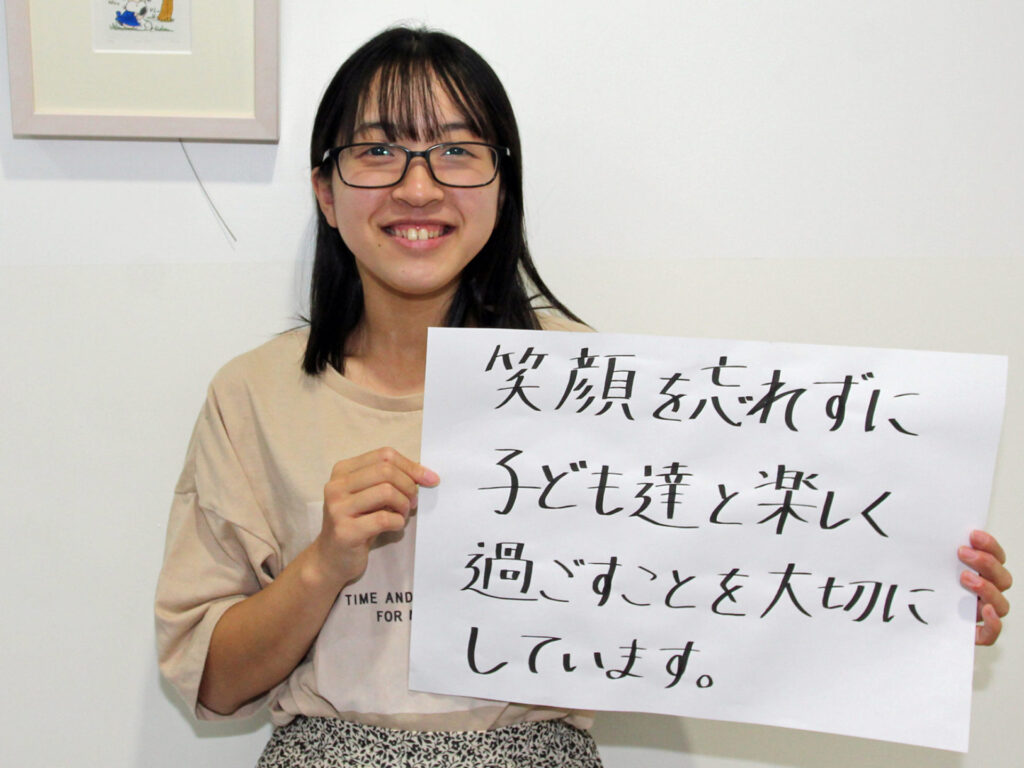 笑顔を忘れずに
子ども達と楽しく
過ごすことを大切に
しています。
TIME AND
FOR